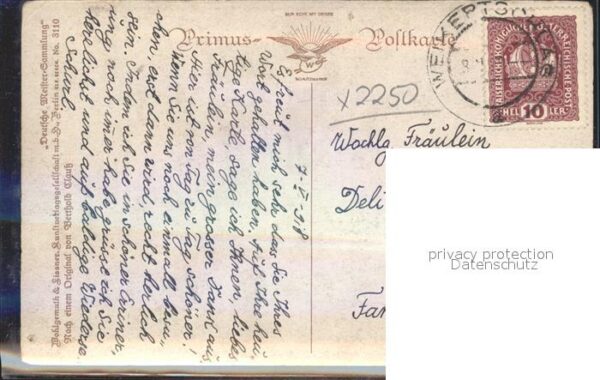 NUR ECHT MIT DIESER
W S
SCHUTZMARKE
Primus-Postkarte
"Deutsche Meister-Sammlung"
Wohlgemuth & Lissner, Kunstverlagsgesellschaft m.b.H., Berlin
No. 3110
Nach einem Original von Berthold Clauß
KAISERLICHE KÖNIGLICHE ÖSTERREICHISCHE POST
HELLER
10
x2250
7. V. 18
Es freut mich sehr dass Sie Ihres
Wort gehalten haben. Auf Ihre heu-
tige Karte sage ich Ihnen, liebes
Fräulein, mein grosser Dank aus.
Hier ist von Tag zu Tag schöner!
Wenn Sie uns noch einmall kom,
chen erst dann wird recht herlich
sein. Indem ich Sie in schöner Eriner,
ung noch imer habe grüsse ich Sie
herzlichst und auf baldige Wiederse
Wochlg. Fräulein
Deli
Fa
privacy protection
Datenschutz